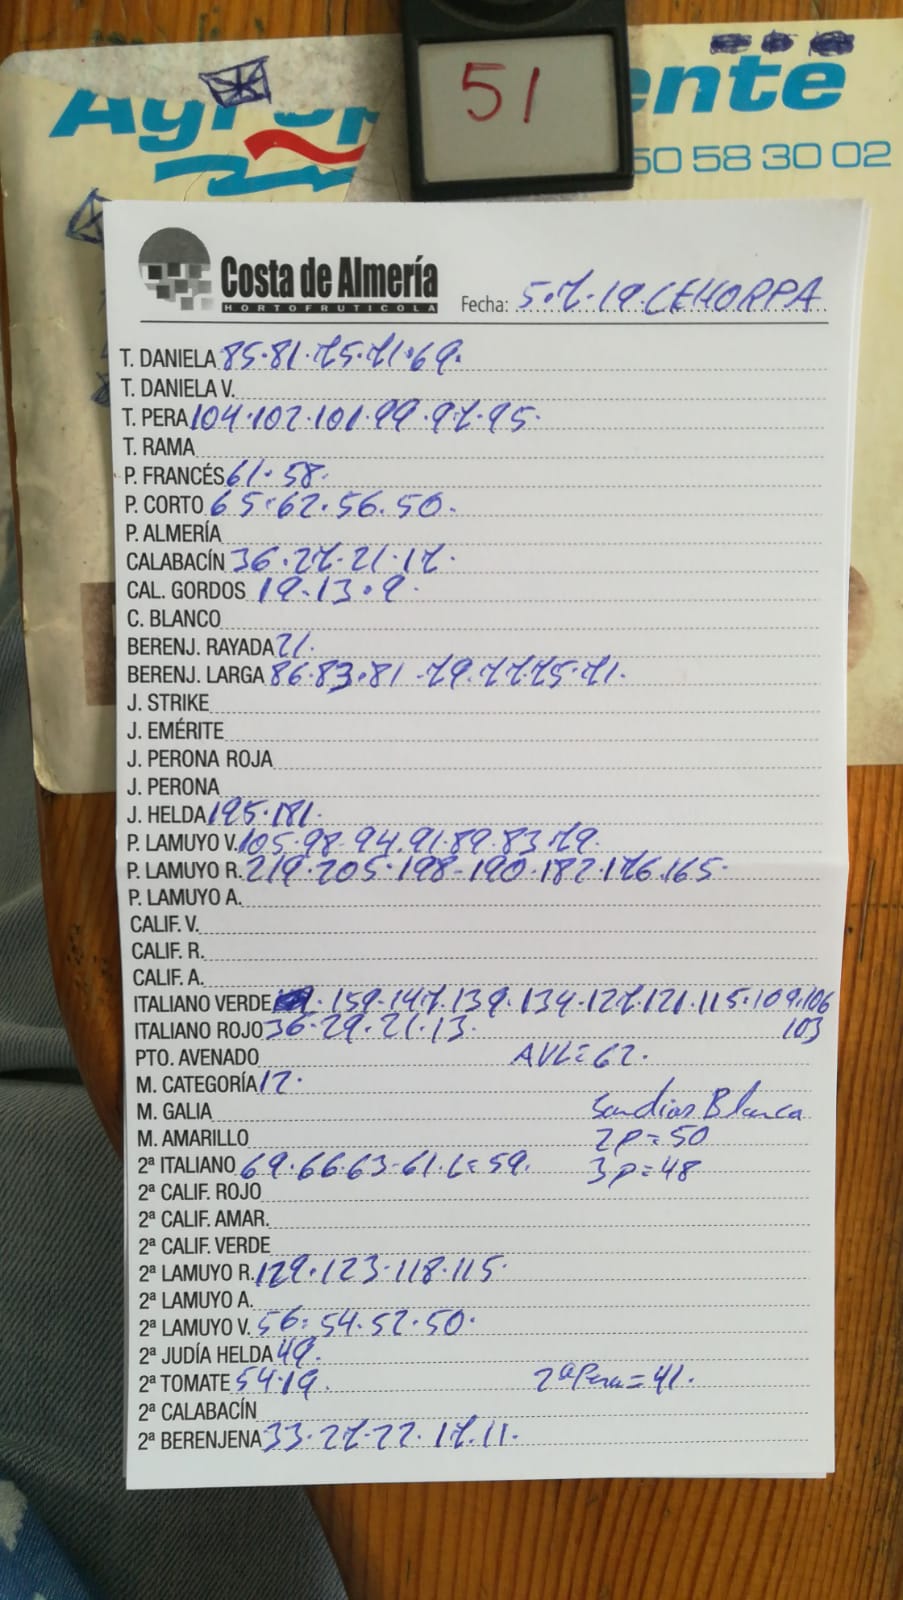 51
Agrop ente
50 58 30 02
Costa de Almería
HORTOFRUTICOLA
Fecha: 5.7.19 CEHORPA
T. DANIELA 85.81.75.71.69.
T. DANIELA V.
T. PERA 104.102.101.99.97.95.
T. RAMA
P. FRANCÉS 61.58.
P. CORTO 65.62.56.50.
P. ALMERÍA
CALABACÍN 36.27.21.17.
CAL. GORDOS 19.13.9.
C. BLANCO
BERENJ. RAYADA 21.
BERENJ. LARGA 86.83.81.79.77.75.71.
J. STRIKE
J. EMÉRITE
J. PERONA ROJA
J. PERONA
J. HELDA 195.181.
P. LAMUYO V. 105.98.94.91.89.83.79.
P. LAMUYO R. 219.205.198-190.182.176.165.
P. LAMUYO A.
CALIF. V.
CALIF. R.
CALIF. A.
ITALIANO VERDE .159.147.139.134.127.121.115.109.106
ITALIANO ROJO 36.29.21.13. 103
PTO. AVENADO AVL=62.
M. CATEGORÍA 12.
M. GALIA Sandias Blanca
M. AMARILLO 2p=50
2ª ITALIANO 69.66.63-61.L=59. 3p=48
2ª CALIF. ROJO
2ª CALIF. AMAR.
2ª CALIF. VERDE
2ª LAMUYO R. 129.123.118.115.
2ª LAMUYO A.
2ª LAMUYO V. 56.54.52.50.
2ª JUDÍA HELDA 49.
2ª TOMATE 54.19. 2ª Pera=41.
2ª CALABACÍN
2ª BERENJENA 33.27.22.17.11.